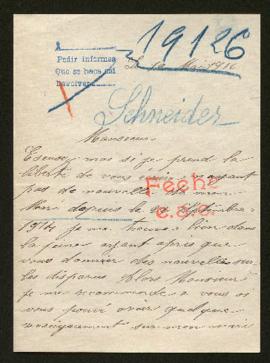 19126
A
Pedir informes
Que se hace
Devolver
Le 12 Mai 1916
Schneider
Monsieur
Excusez moi si je prend la
liberté de vous n'ayant
pas de nouvelles de mon
Mari depuis le Septembre
1914 je me trouve bien dans
la peine ayant apris que
vous donnier des nouvelles sur
les disparus Alors Monsieur
je me recommande a vous si
vous pouvé avoir quelque
renseignement sur mon mari
Fecha